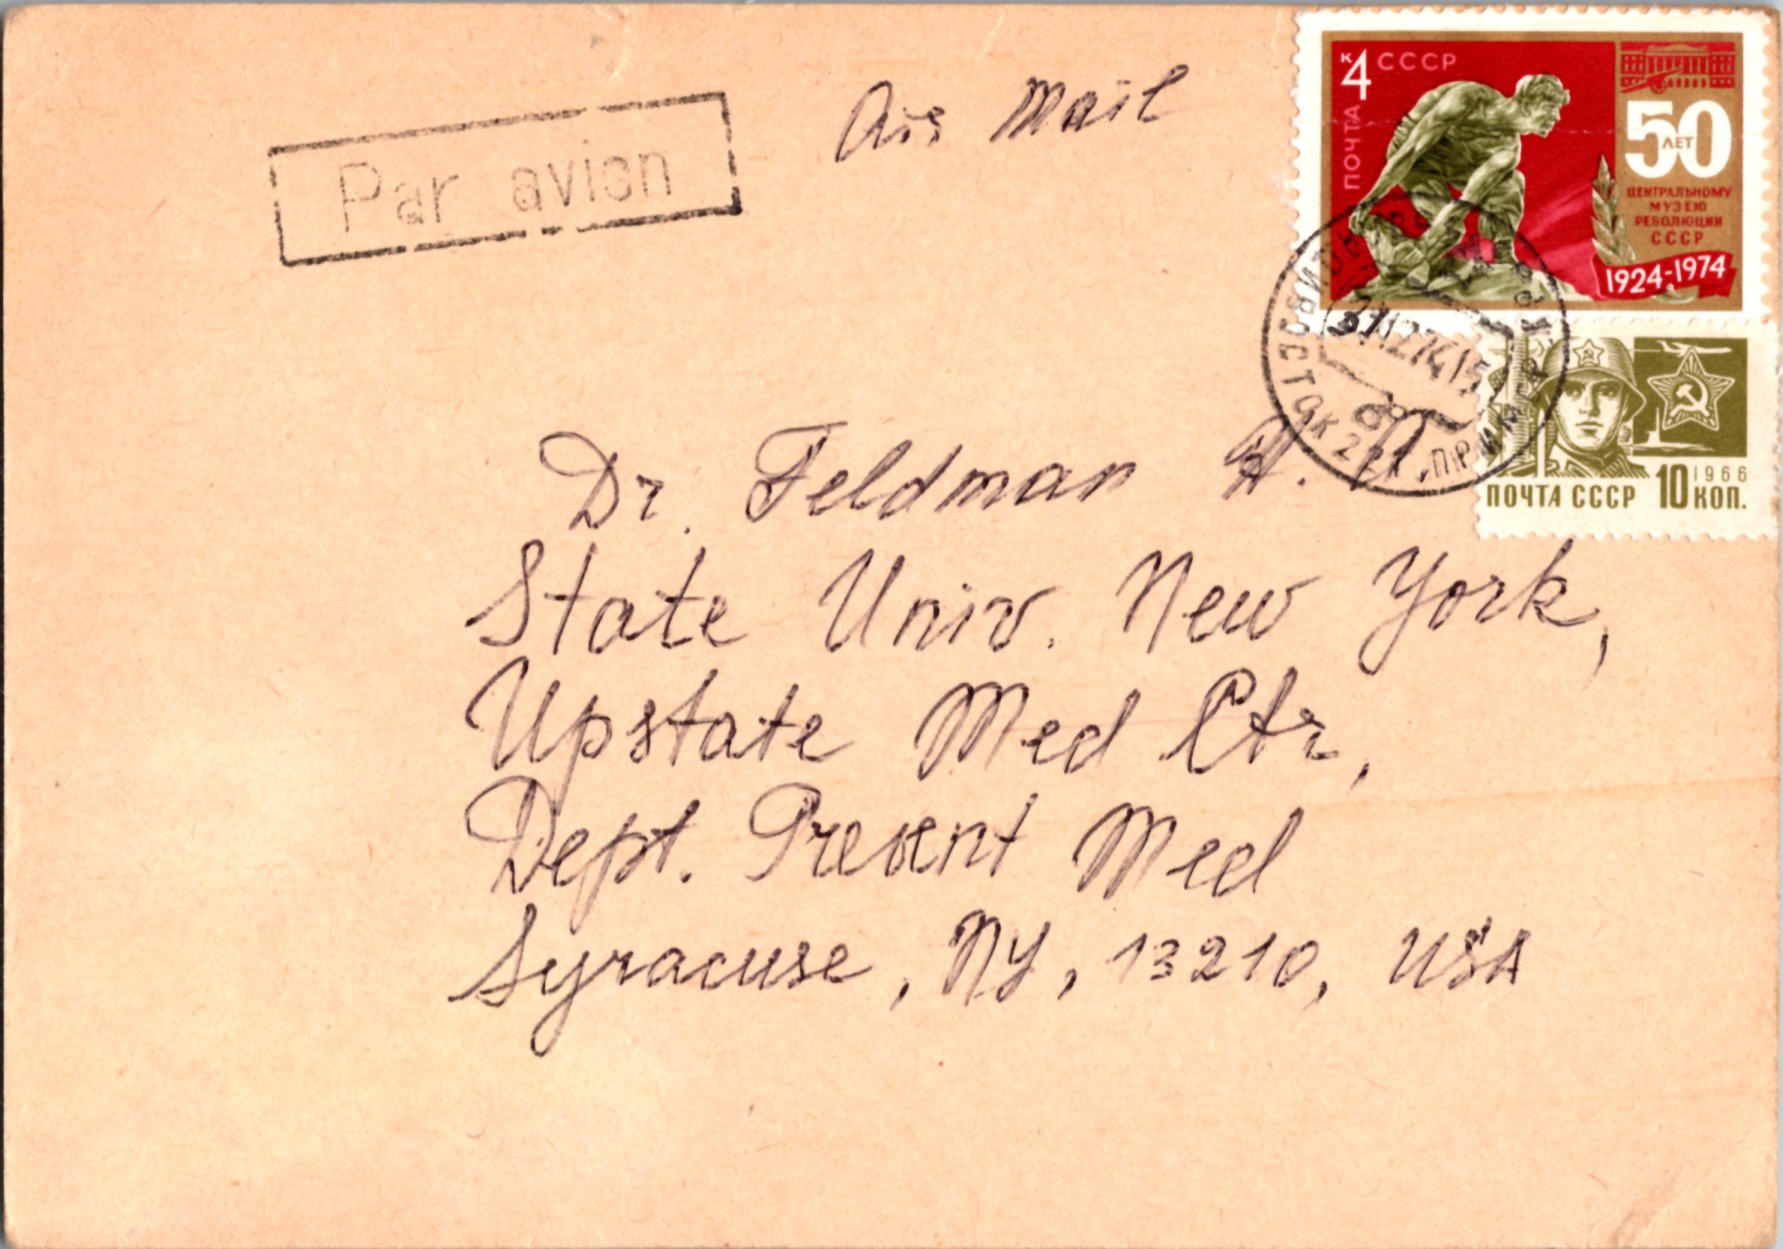 Par avion
Air Mail
к 4 СССР
ПОЧТА
50
ЛЕТ
ЦЕНТРАЛЬНОМУ
МУЗЕЮ
РЕВОЛЮЦИИ
СССР
1924-1974
1966
ПОЧТА СССР 10 КОП.
Dr. Feldman H. A.
State Univ. New York,
Upstate Med Ctr,
Dept. Prevent Med
Syracuse, NY, 13210, USA